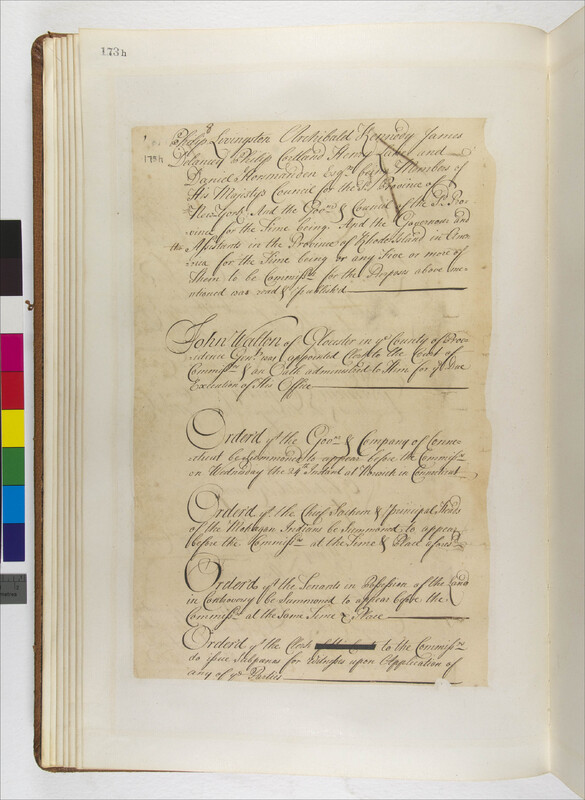 173b
173b
Philip Levingston Archibald Kennedy James
Delancey Philip Cortland Henry Lane and
Daniel Horsmanden Esqrs. being Members of
His Majestys Council for the sd. Province of
New York. And the Govr. & Council of the sd. Pro-
vince for the Time being. And the Governour and
the Assistants in the Province of Rhode Island in Ame-
rica for the Time being or any Five or more of
Them to be Commissrs. for the Purposes above men-
tioned was read & published
John Walton of Glocester in ye County of Prov-
idence Gent. was appointed Clerk to the Court of
Commissrs. & an Oath administred to Him for ye Due
Execution of His Office
Order'd yt. the Govr. & Company of Connec-
ticut be Summoned to appear before the Commissrs.
on Wednesday the 24th Instant at Norwich in Connecticut
Order'd yt. the Chief Sachem & principal Heads
of the Mohegan Indians be Summoned to appear
before the Commissrs. at the Time & Place aforesd.
Order'd yt. the Tenants in Possession of the Land
in Controversy be Summond to appear before the
Commissrs. at the Same Time & Place
Order'd yt. the Clerk to the Commissrs.
do issue Subpœnas for Witnesses upon Application of
any of ye Parties